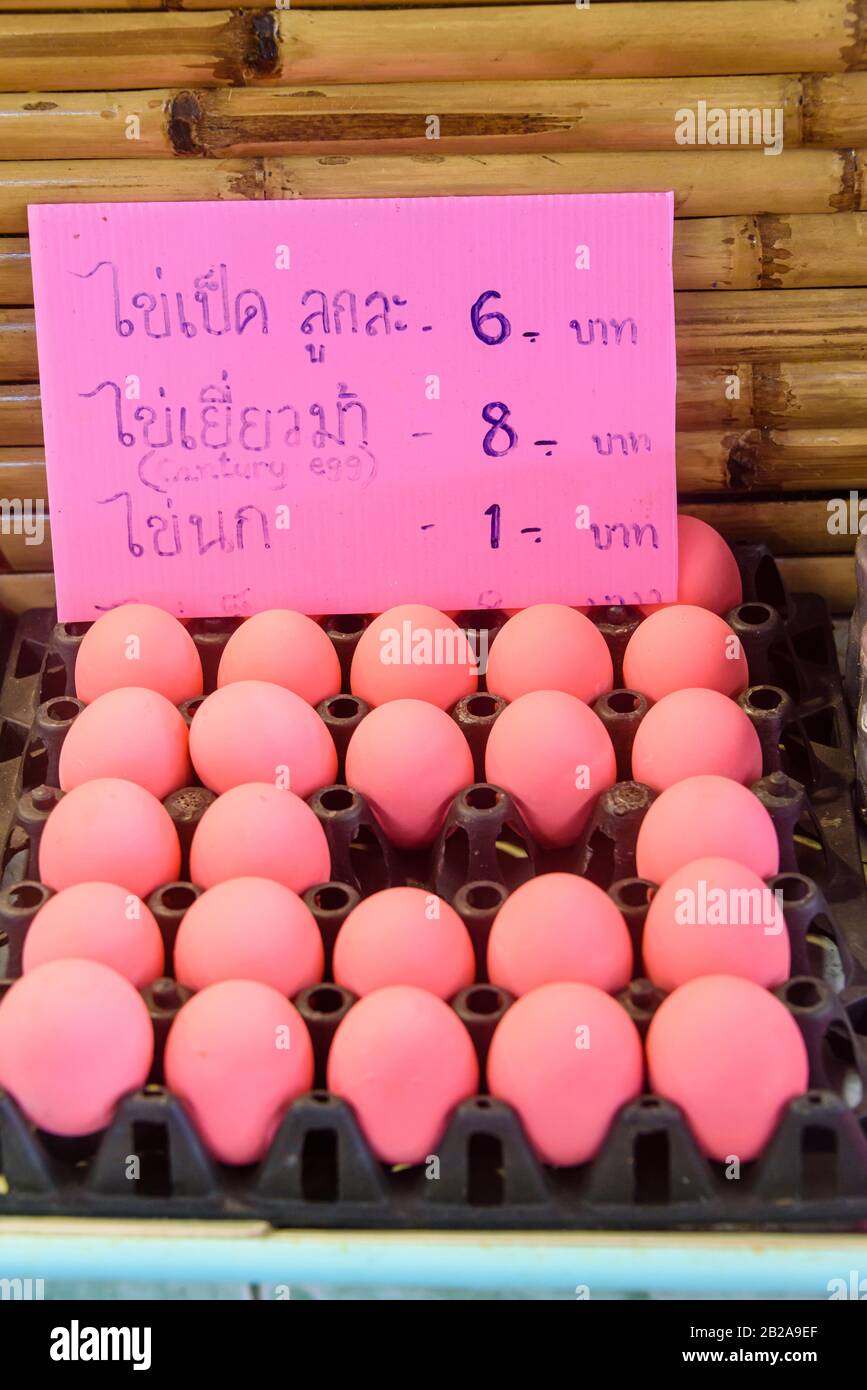 ไข่เป็ด ลูกละ - 6.- บาท
ไข่เยี่ยวม้า - 8.- บาท
(Cantury egg)
ไข่นก - 1.- บาท
alamy
Image ID: 2B2A9EF
www.alamy.com